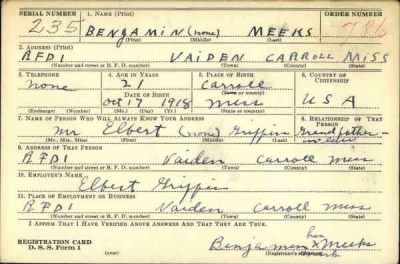 SERIAL NUMBER 1. NAME (Print) ORDER NUMBER
235 BENJAMIN (none) MEEKS
(First) (Middle) (Last)
2. ADDRESS (Print)
RFD1 VAIDEN CARROLL MISS
(Number and street or R. F. D. number) (Town) (County) (State)
3. TELEPHONE 4. AGE IN YEARS 5. PLACE OF BIRTH 6. COUNTRY OF CITIZENSHIP
none 21 Carroll
DATE OF BIRTH (Town or county)
Oct 17 1918 Miss U S A
(Exchange) (Number) (Mo.) (Day) (Yr.) (State or country)
7. NAME OF PERSON WHO WILL ALWAYS KNOW YOUR ADDRESS 8. RELATIONSHIP OF THAT PERSON
Mr Elbert (none) Griffin Grandfather-
in law
(Mr., Mrs., Miss) (First) (Middle) (Last)
9. ADDRESS OF THAT PERSON
RFD1 Vaiden Carroll Miss
(Number and street or R. F. D. number) (Town) (County) (State)
10. EMPLOYER'S NAME
Elbert Griffin
11. PLACE OF EMPLOYMENT OR BUSINESS
RFD1 Vaiden Carroll Miss
(Number and street or R. F. D. number) (Town) (County) (State)
I AFFIRM THAT I HAVE VERIFIED ABOVE ANSWERS AND THAT THEY ARE TRUE.
his
REGISTRATION CARD Benjamin X Meeks
D. S. S. Form 1 (Registrant's signature) mark